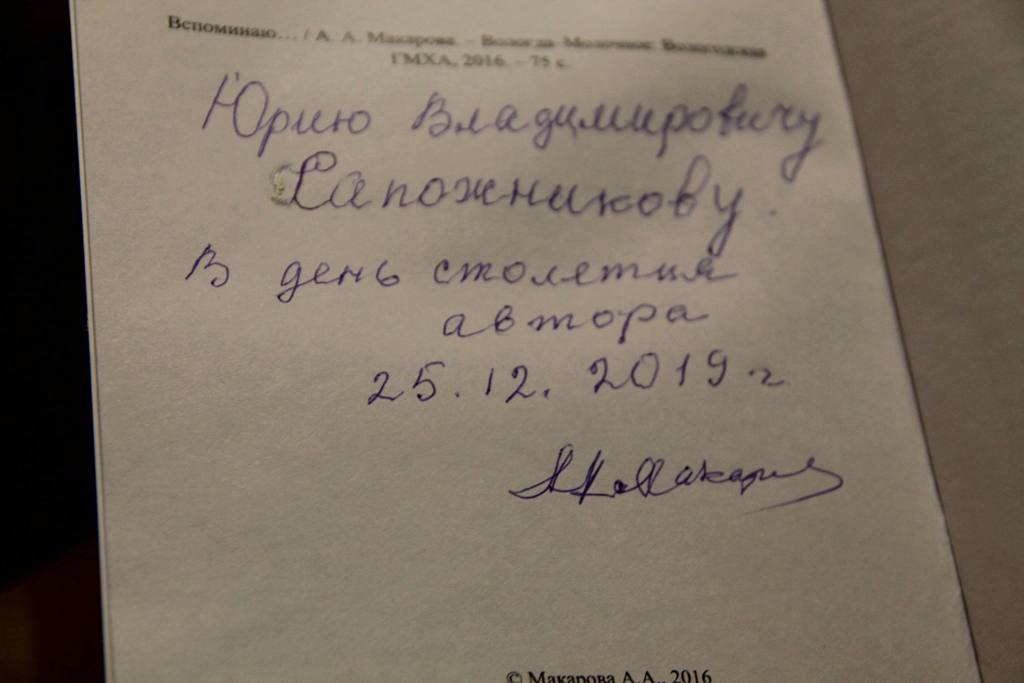 Вспоминаю… / А. А. Макарова. – Вологда–Молочное: Вологодская
ГМХА, 2016. – 75 с.
Юрию Владимировичу
Сапожникову.
В день столетия
автора
25.12.2019 г
© Макарова А.А., 2016